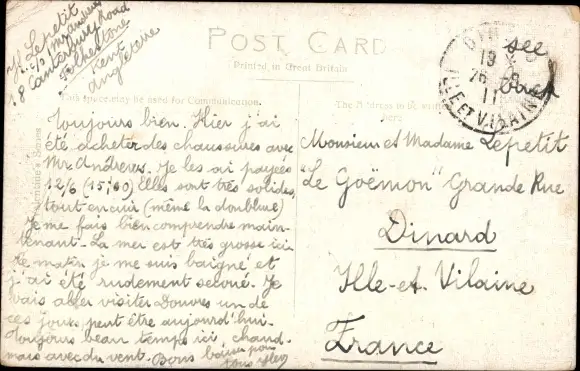 Y. Lepetit
c/o Mr Andrews
18 Canterbury Road
Folkestone
Kent
Angleterre
POST CARD
Printed in Great Britain
This space may be used for Communication.
The Address to be written
here
DINARD
19
26-8
11
ILLE ET VILAINE
see
over
Toujours bien. Hier j'ai
été acheter des chaussures avec
Mr Andrews. Je les ai payées
12/6 (15,60) Elles sont très solides,
tout en cuir (même la doublure)
Je me fais bien comprendre main-
tenant. La mer est très grosse ici
ce matin je me suis baigné et
j'ai été rudement secoué. Je
vais aller visiter Douvres un de
ces jours, peut être aujourd'hui.
Toujours beau temps ici, chaud-
mais avec du vent. Bons baisers pour
tous
Monsieur et Madame Lepetit
"Le Goëmon" Grande Rue
Dinard
Ille-et-Vilaine
France